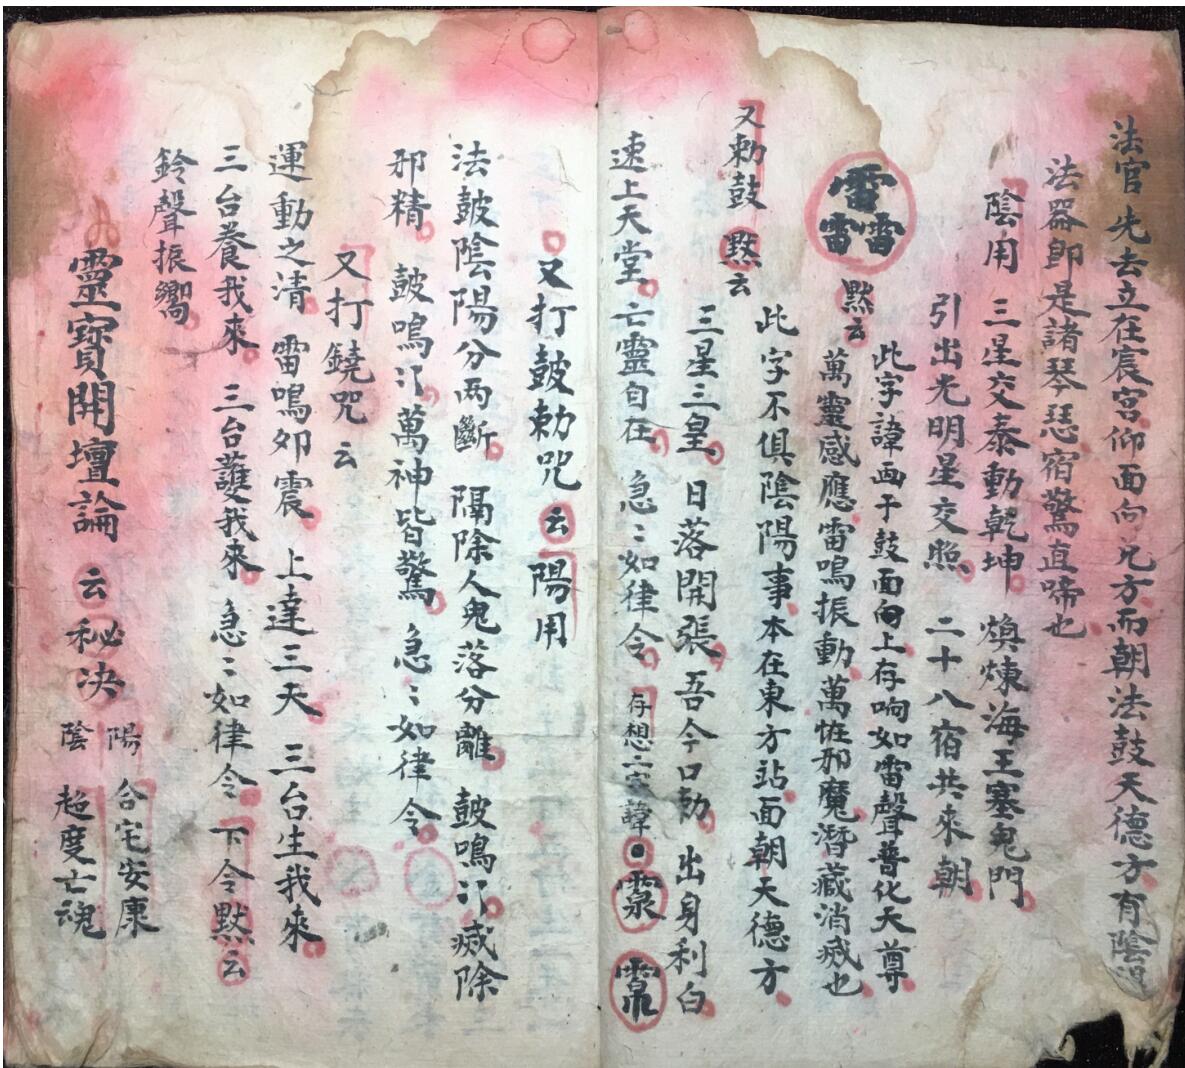 法官先去立在宸宮仰面向兄方而朝法鼓天德方有陰
法器即是諸琴瑟宿驚直啼也
陰用 三星交泰動乾坤 煥煉海王塞鬼門
引出光明星交照 二十八宿共來朝
此字諱画于鼓面向上存响如雷聲普化天尊
雷雷雷 黙云 萬靈感應雷鳴振動萬怪邪魔潛藏消烕也
此字不俱陰陽事本在東方站面朝天德方
又勅鼓黙云 三星三皇 日落開張 吾今口勅 出身利白
速上天堂 亡靈自在 急〻如律令 存想二字諱
又打皷勅咒云陽用
法皷陰陽分两斷 隔除人鬼落分離 皷鳴 烕除
邪精 皷鳴 萬神皆驚 急〻如律令
又打鐃咒云
運動之清 雷鳴如震 上達三天 三台生我來
三台養我來 三台護我來 急〻如律令 下令黙云
鈴聲振嚮
靈寶開壇論 云秘决 陽 合宅安康 陰 超度亡魂